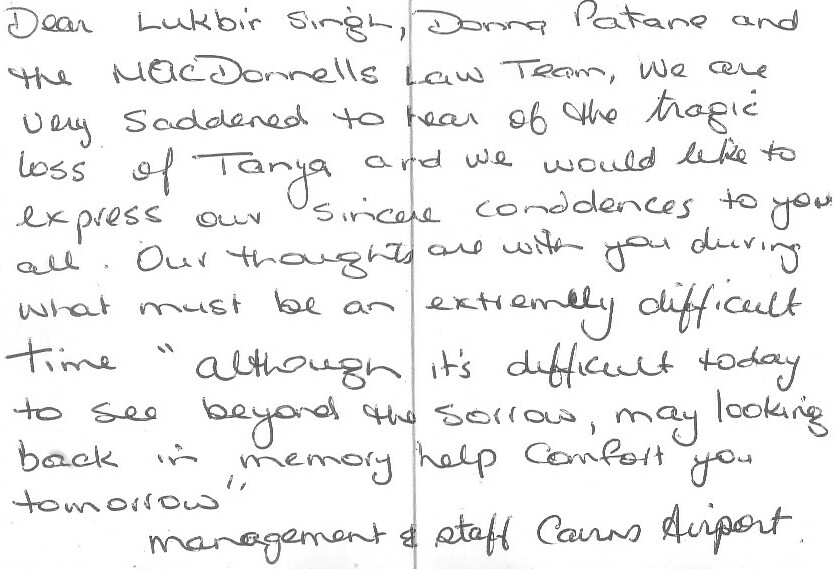 Dear Lukbir Singh, Donna Patane and
the MacDonnells Law Team, We are
very Saddened to hear of the tragic
loss of Tanya and we would like to
express our sincere condolences to you
all. Our thoughts are with you during
what must be an extremely difficult
time "although it's difficult today
to see beyond the sorrow, may looking
back in memory help Comfort you
tomorrow"
management & staff Cairns Airport.